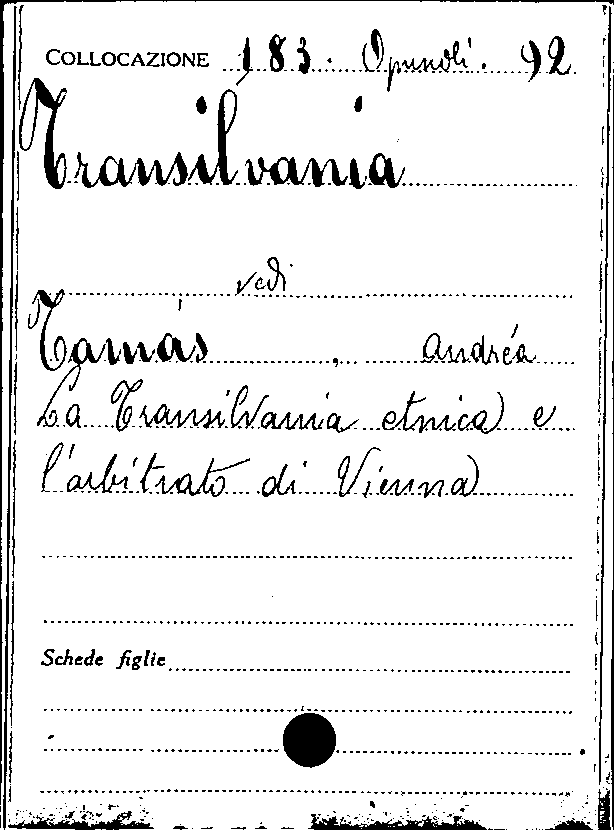 COLLOCAZIONE 183. Opuscoli. 92
Transilvania
vedi
Tamás, Andréa
La Transilvania etnica e
l'arbitrato di Vienna
Schede figlie